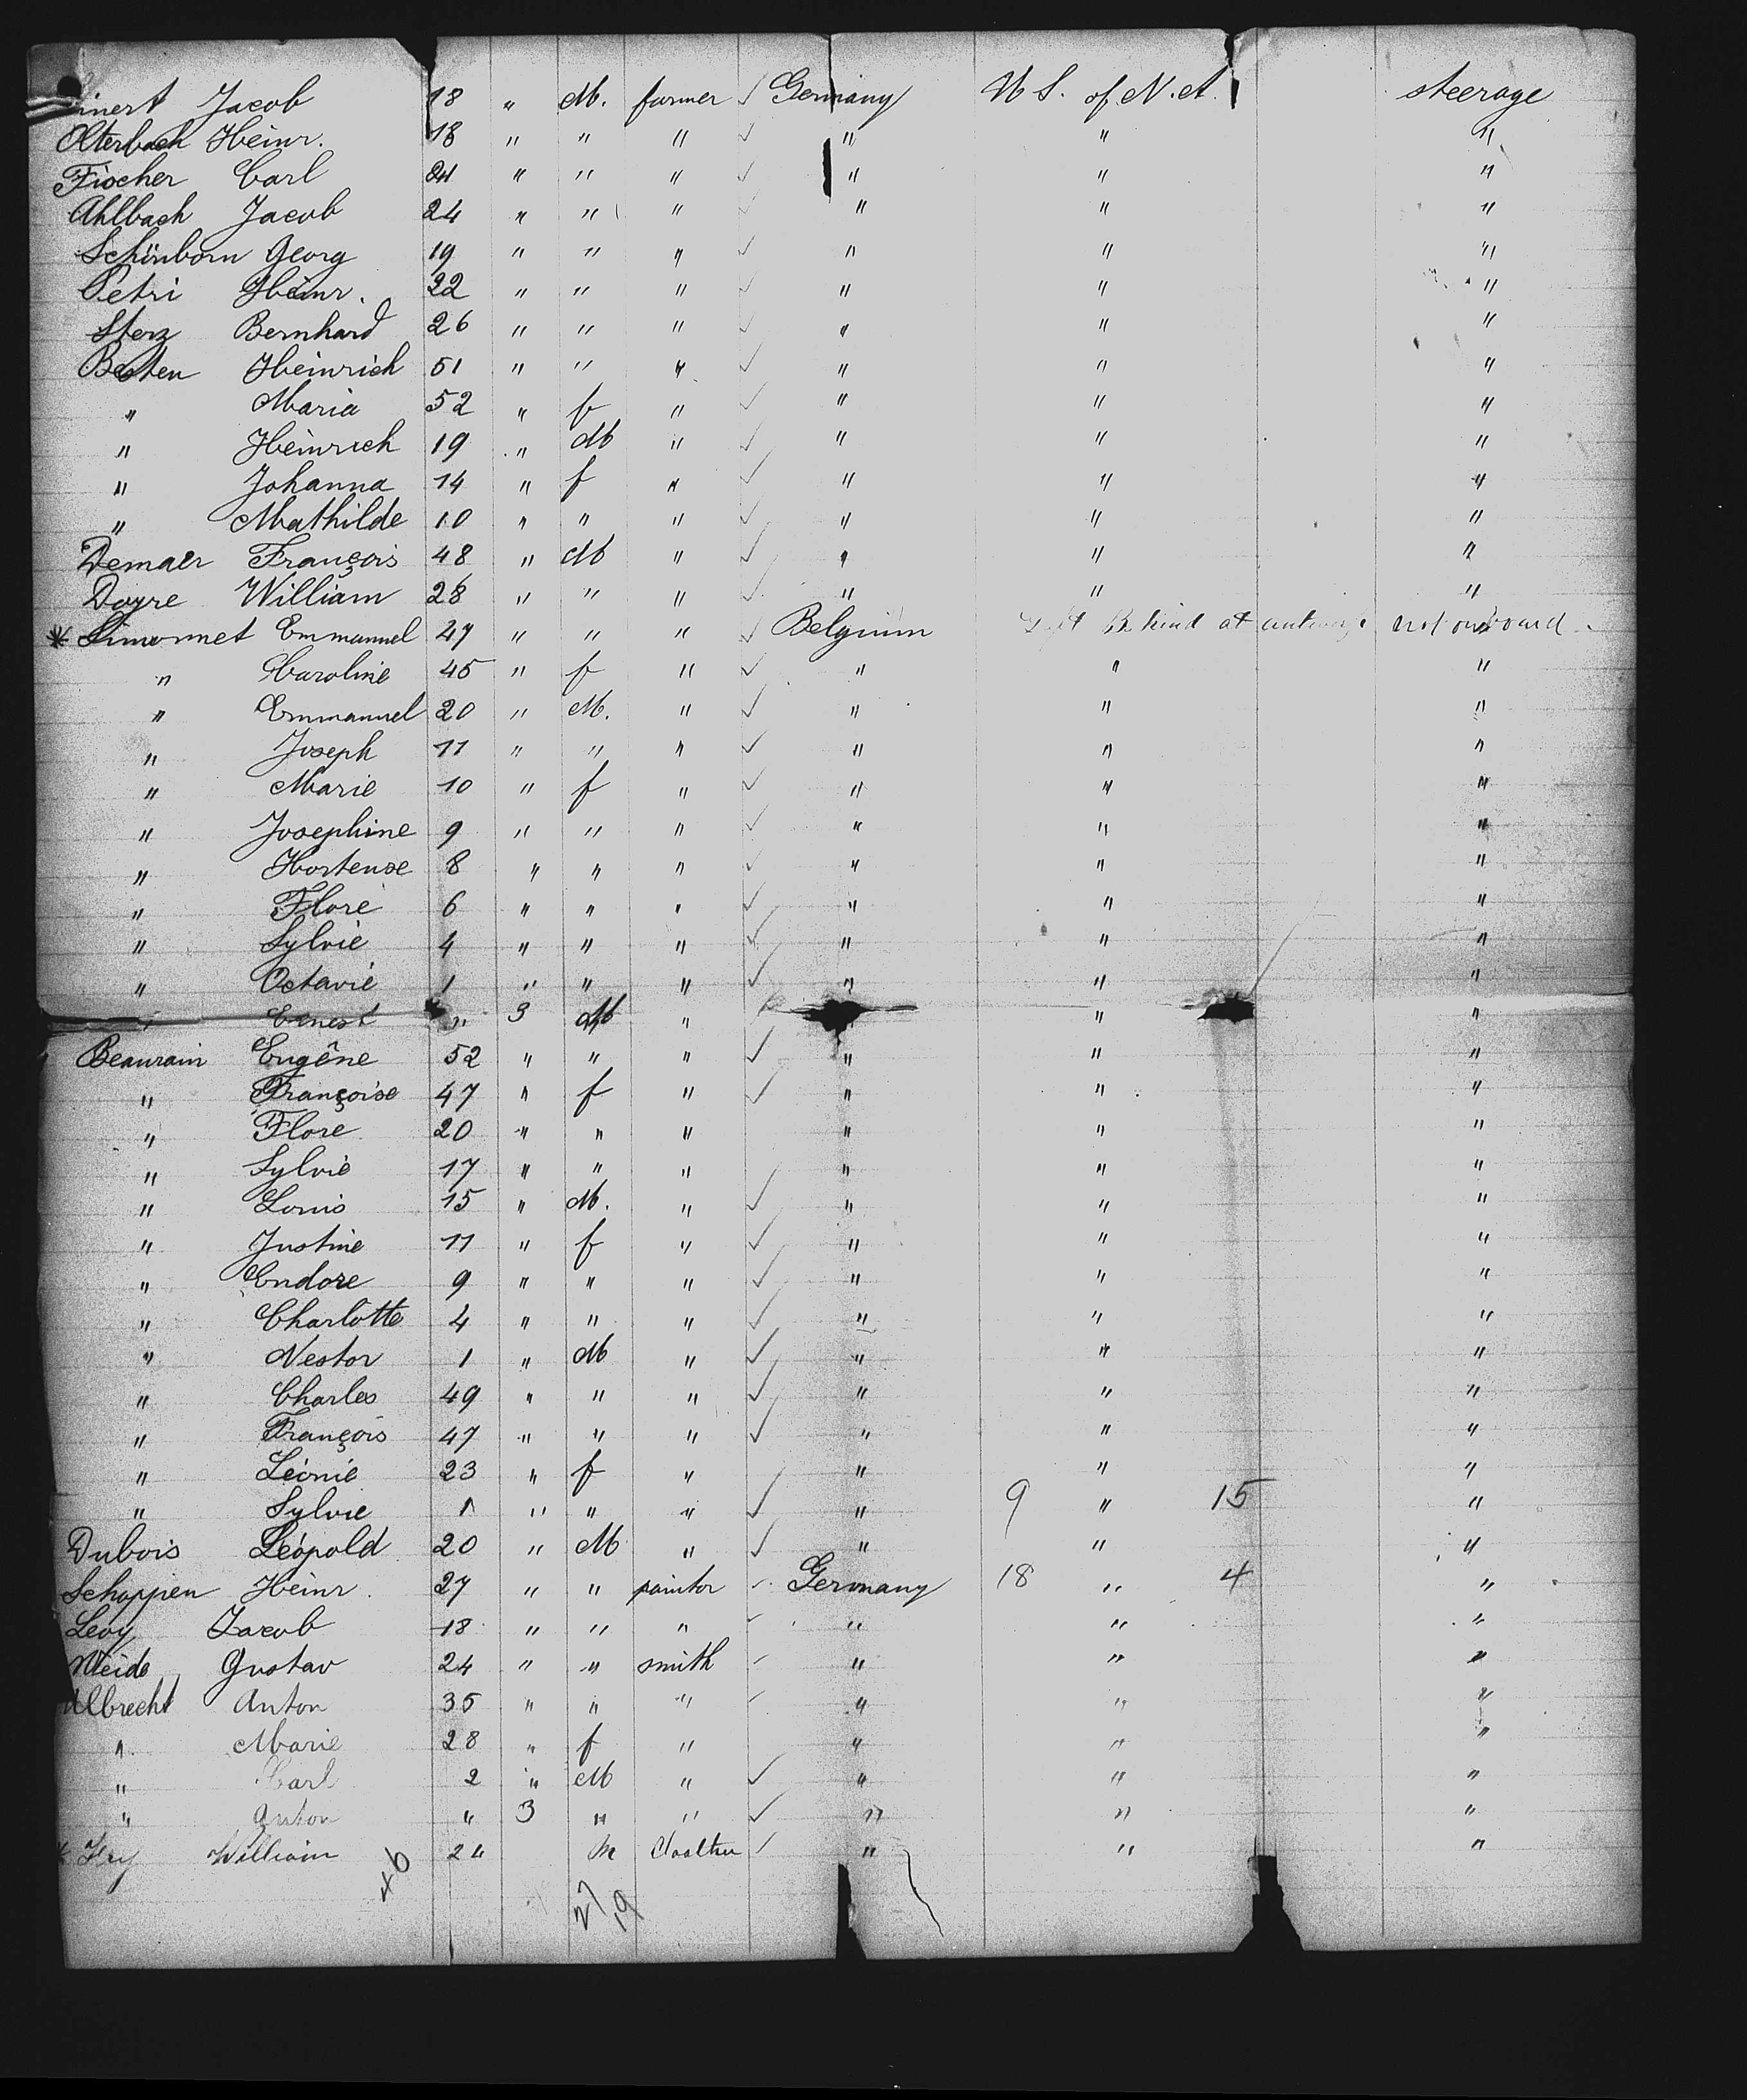 Jacob 18 " M. farmer ✓ Germany U S. of N. A. steerage
Olterbach Heinr. 18 " " " ✓ " " "
Fischer Carl 24 " " " ✓ " " "
Ahlbach Jacob 24 " " " ✓ " " "
Schönborn Georg 19 " " " ✓ " " "
Petri Heinr. 22 " " " ✓ " " "
Sterz Bernhard 26 " " " ✓ " " "
Besten Heinrich 51 " " " ✓ " " "
" Maria 52 " f " ✓ " " "
" Heinrich 19 " M " ✓ " " "
" Johanna 14 " f " ✓ " " "
" Mathilde 10 " " " ✓ " " "
Demaer François 48 " M " ✓ " " "
Doyre William 28 " " " ✓ " " "
* Simonnet Emmanuel 47 " " " ✓ Belgium Left Behind at not on board
" Caroline 45 " f " ✓ " " "
" Emmanuel 20 " M. " ✓ " " "
" Joseph 11 " " " ✓ " " "
" Marie 10 " f " ✓ " " "
" Josephine 9 " " " ✓ " " "
" Hortense 8 " " " ✓ " " "
" Flore 6 " " " ✓ " " "
" Sylvie 4 " " " ✓ " " "
" Octavie 1 " " " ✓ " " "
" Ernest " 3 M " " "
Beaurain Eugêne 52 " " " ✓ " " "
" Françoise 47 " f " ✓ " " "
" Flore 20 " " " " " "
" Sylvie 17 " " " ✓ " " "
" Louis 15 " M. " ✓ " " "
" Justine 11 " f " ✓ " " "
" Endore 9 " " " ✓ " " "
" Charlotte 4 " " " ✓ " " "
" Nestor 1 " M " ✓ " " "
" Charles 49 " " " ✓ " " "
" François 47 " " " ✓ " " "
" Léonie 23 " f " ✓ " " "
" Sylvie 1 " " " ✓ " 9 " 15 "
Dubois Léopold 20 " M " ✓ " " "
Schoppen Heinr. 27 " " painter ✓ Germany 18 " 4 "
Levy Jacob 18 " " " ✓ " " "
Weide Gustav 24 " " smith ✓ " " "
Albrecht Anton 35 " " " ✓ " " "
" Marie 28 " f " " " "
" Carl 2 " M " ✓ " " "
" Anton " 3 " " ✓ " " "
William 24 M ✓ " " "
46 27
19